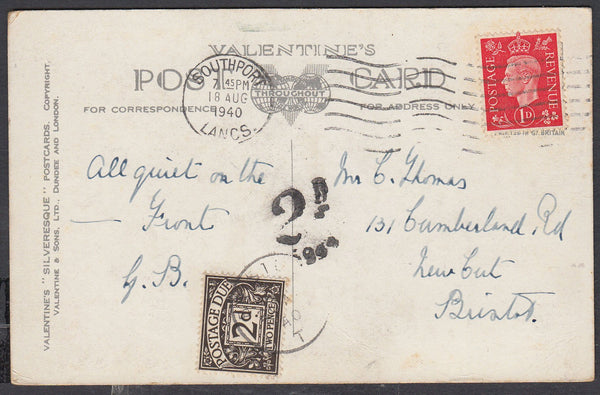 VALENTINE'S
POST CARD
THROUGHOUT
FOR CORRESPONDENCE
FOR ADDRESS ONLY
SOUTHPORT
7 45 PM
18 AUG
1940
LANCS.
POSTAGE REVENUE
1D
PRINTED IN GT. BRITAIN
VALENTINE'S "SILVERESQUE" POSTCARDS. COPYRIGHT.
VALENTINE & SONS, LTD., DUNDEE AND LONDON.
All quiet on the
— Front
G.B.
2D
Mr C. Thomas
131 Cumberland Rd
New Cut
Bristol.
POSTAGE DUE
2d
TWO PENCE